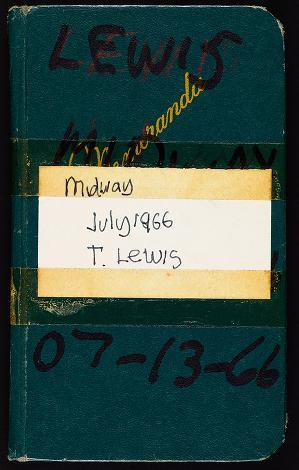 LEWIS
Memoranda
MIDWAY
Midway
July 1966
T. Lewis
07-13-66